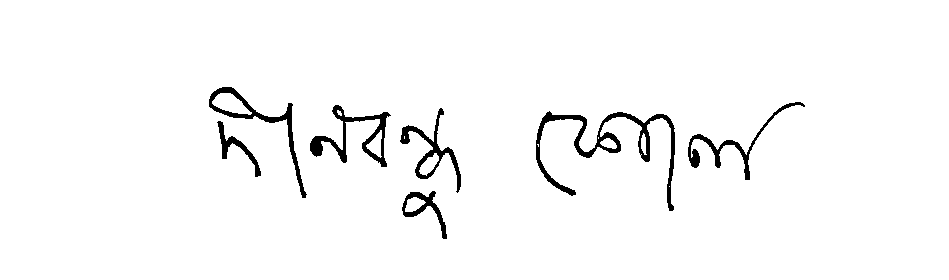 দীনবন্ধু ঘোল